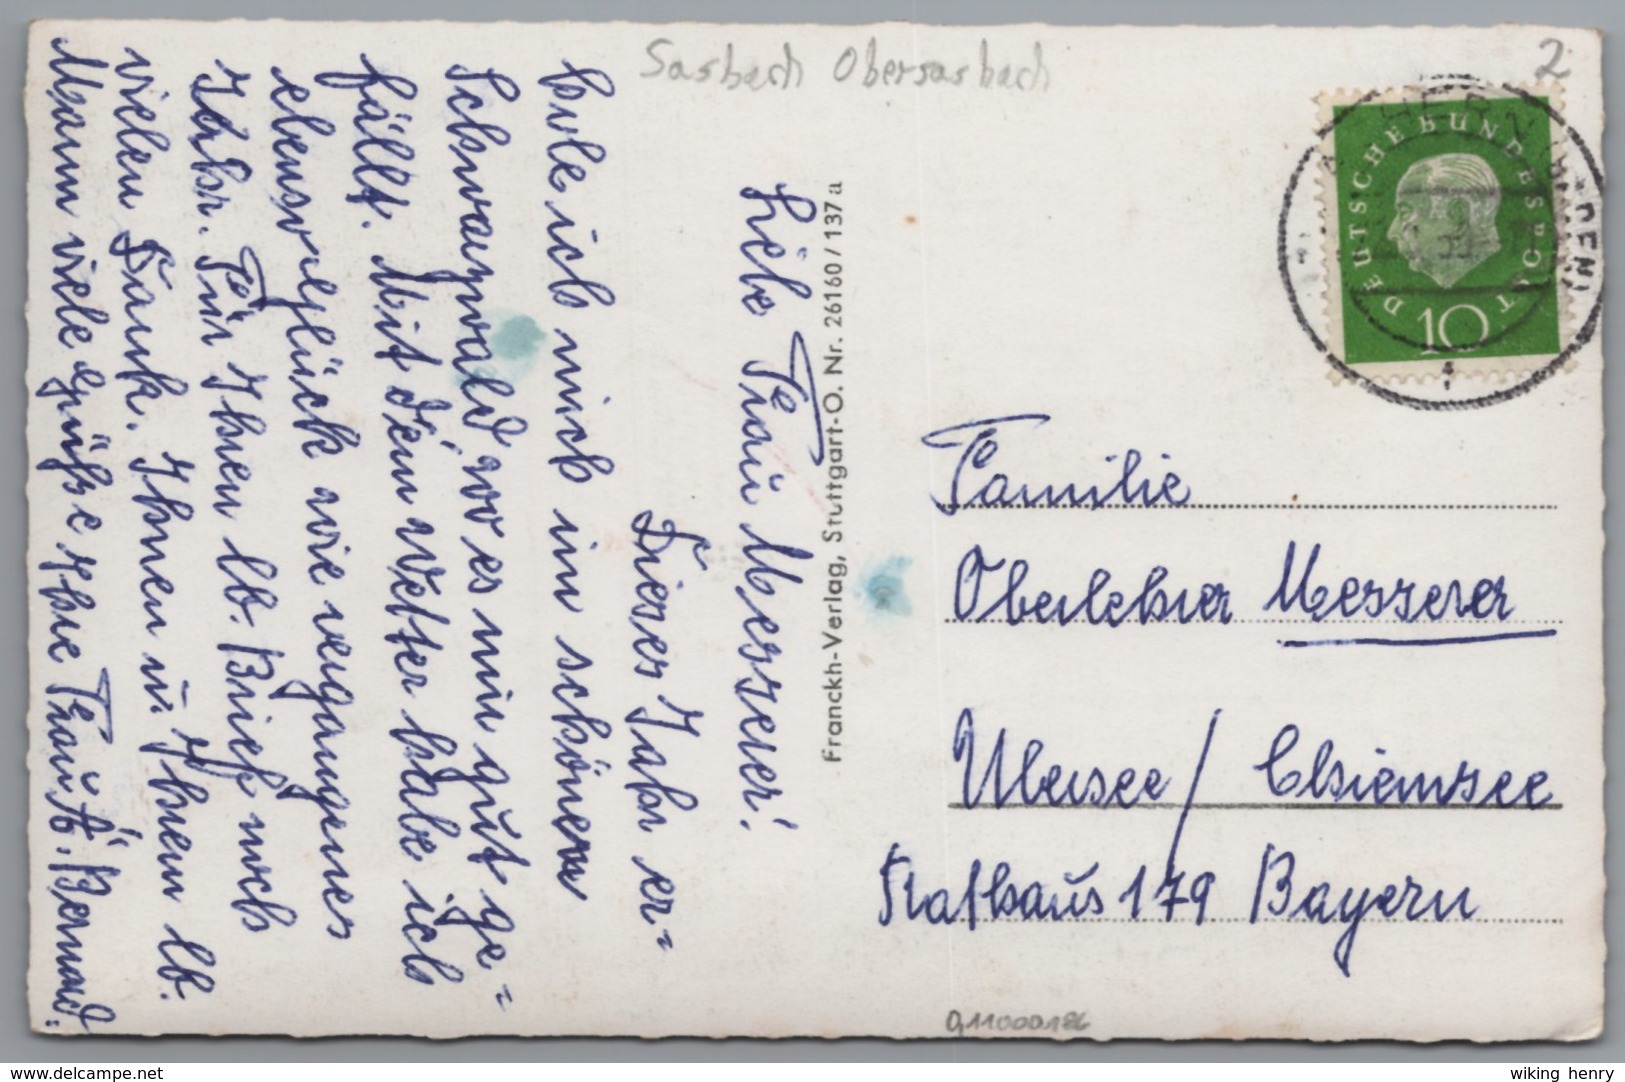 Sasbach Obersasbach
2
Liebe Frau Messerer!
Dieses Jahr er=
hole ich mich im schönen
Schwarzwald wo es mir gut ge=
fällt. Mit dem Wetter habe ich
ebensoviel Glück wie vergangenes
Jahr. Für Ihren lb. Brief noch
vielen Dank. Ihnen u. Ihrem lb.
Mann viele Grüße Ihre Frau A. Bernard.
Franckh-Verlag, Stuttgart-O. Nr. 26160/137a
DEUTSCHE BUNDESPOST
10
Familie
Oberlehrer Messerer
Übersee/Chiemsee
Rathaus 179 Bayern
www.delcampe.net
wiking henry